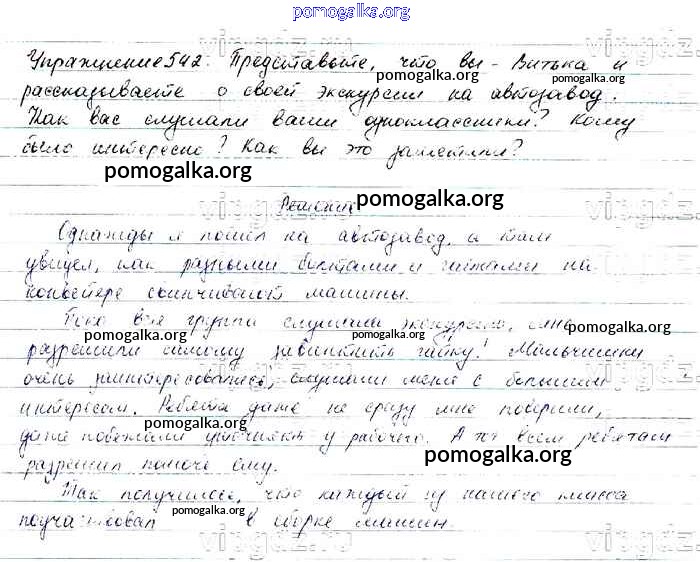 pomogalka.org
Упражнение 542. Представьте, что вы - Витька и
pomogalka.org pomogalka.org
рассказываете о своей экскурсии на автозавод.
Как вас слушали ваши одноклассники? Кому
было интересно? Как вы это заметили?
pomogalka.org
Решение pomogalka.org
Однажды я пошел на автозавод, а там
увидел, как разными болтами и гайками на
конвейере свинчивают машины.
Пока вся группа слушала экскурсию, мне
pomogalka.org pomogalka.org
разрешили самому завинтить гайку! Мальчишки
очень заинтересовались, слушали меня с большим
интересом. Ребята даже не сразу мне поверили,
pomogalka.org
даже побежали уточнять у рабочего. А тот всем ребятам
pomogalka.org
разрешил помочь ему.
Так получилось, что каждый из нашего класса
поучаствовал pomogalka.org в сборке машин.
pomogalka.org